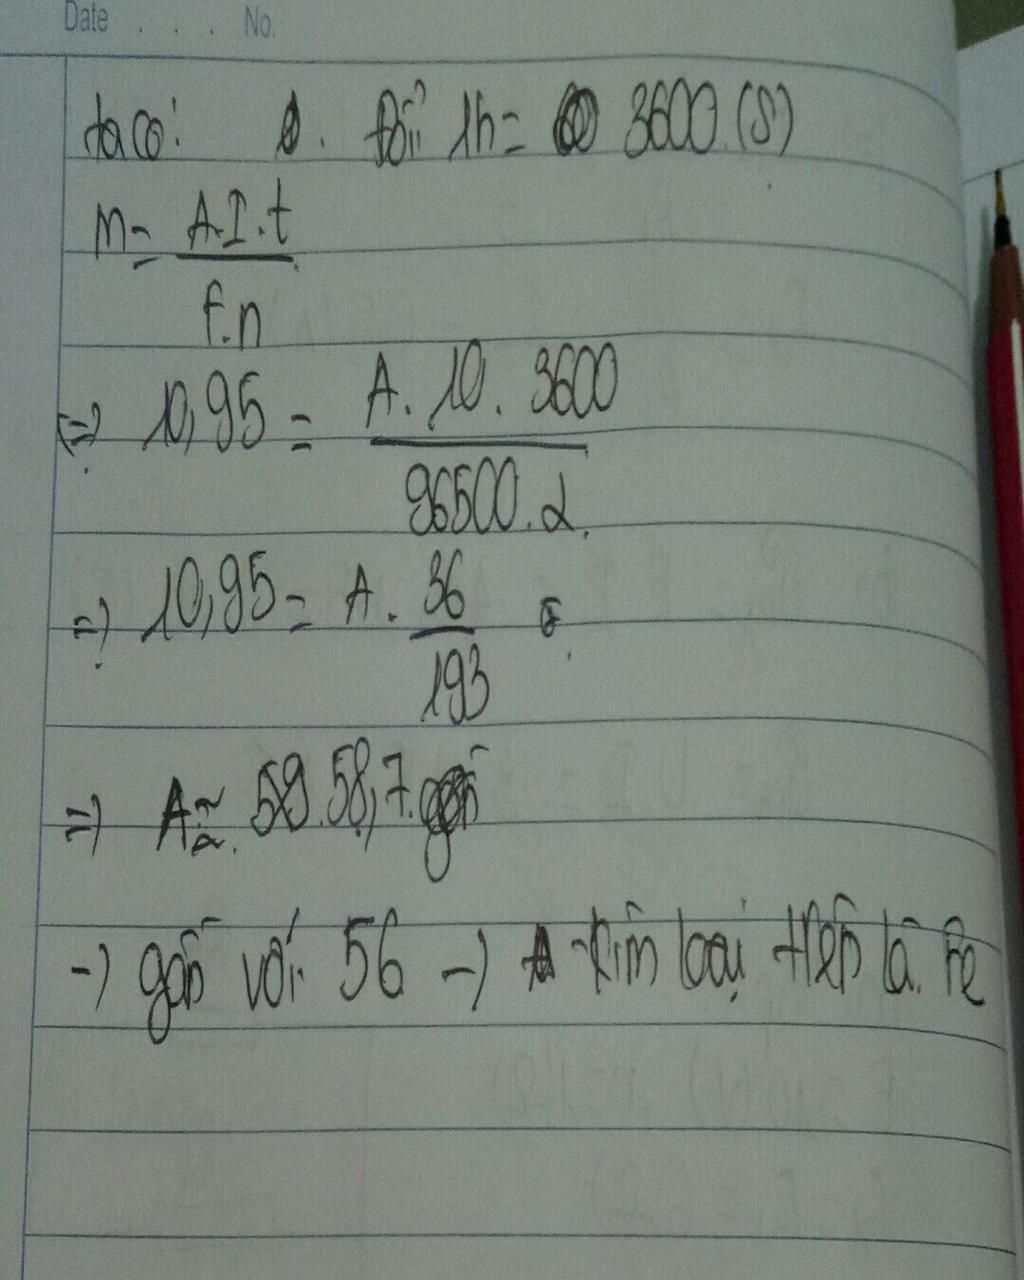 Date . . . No.
ta có: đổi 1h = 3600 (s)
m = A.I.t
F.n
=> 10,95 = A. 10. 3600
96500.2
=> 10,95 = A. 36
193
=> A ≈ 58,7.
-> gần với 56 -> kim loại trên là Fe